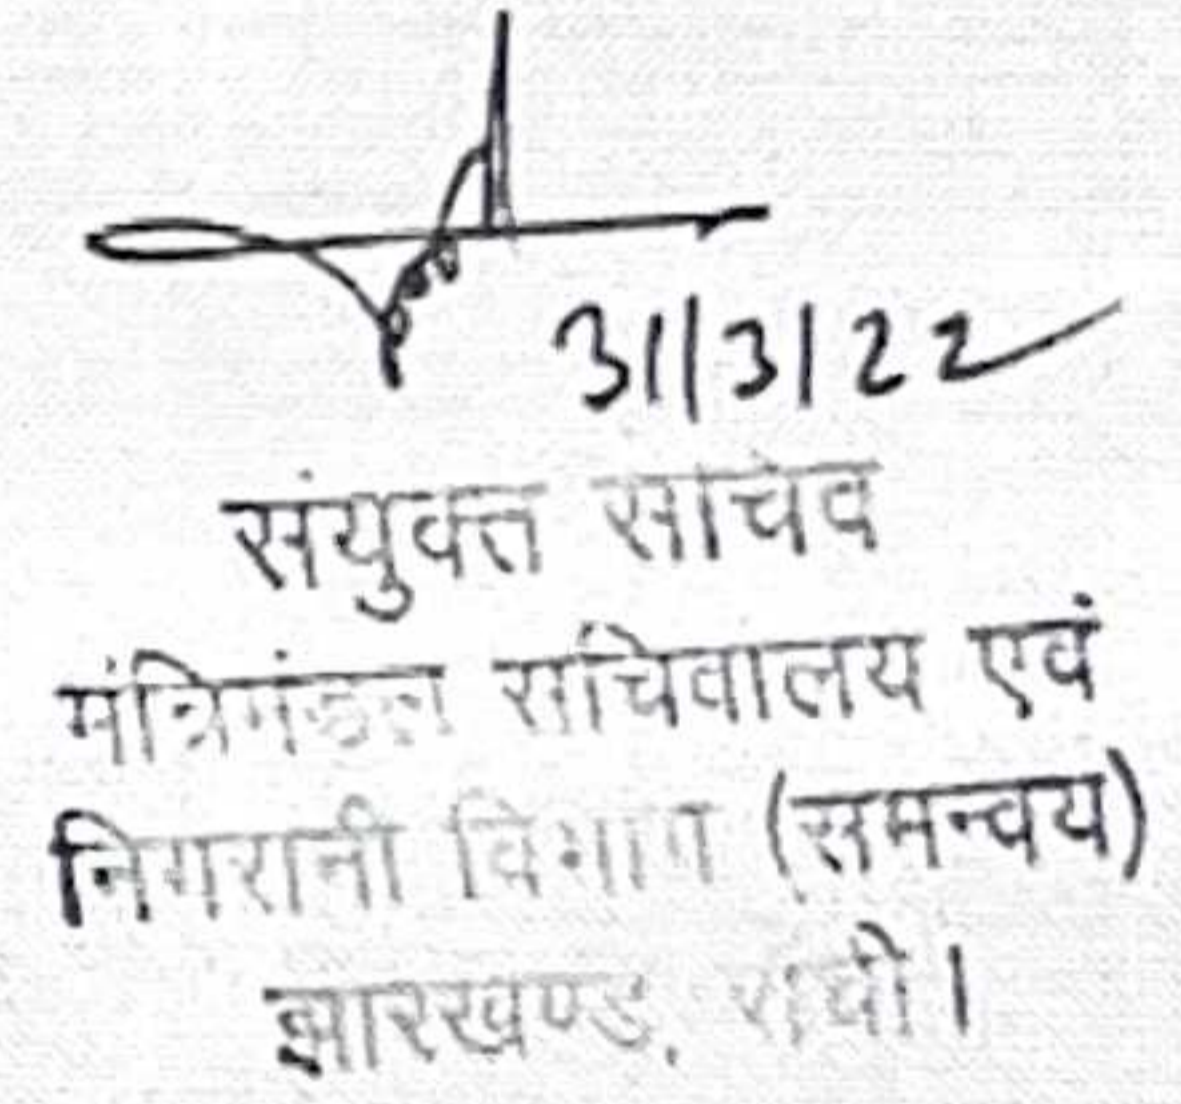 31/3/22
संयुक्त सचिव
मंत्रिमंडल सचिवालय एवं
निगरानी विभाग (समन्वय)
झारखण्ड, रांची।